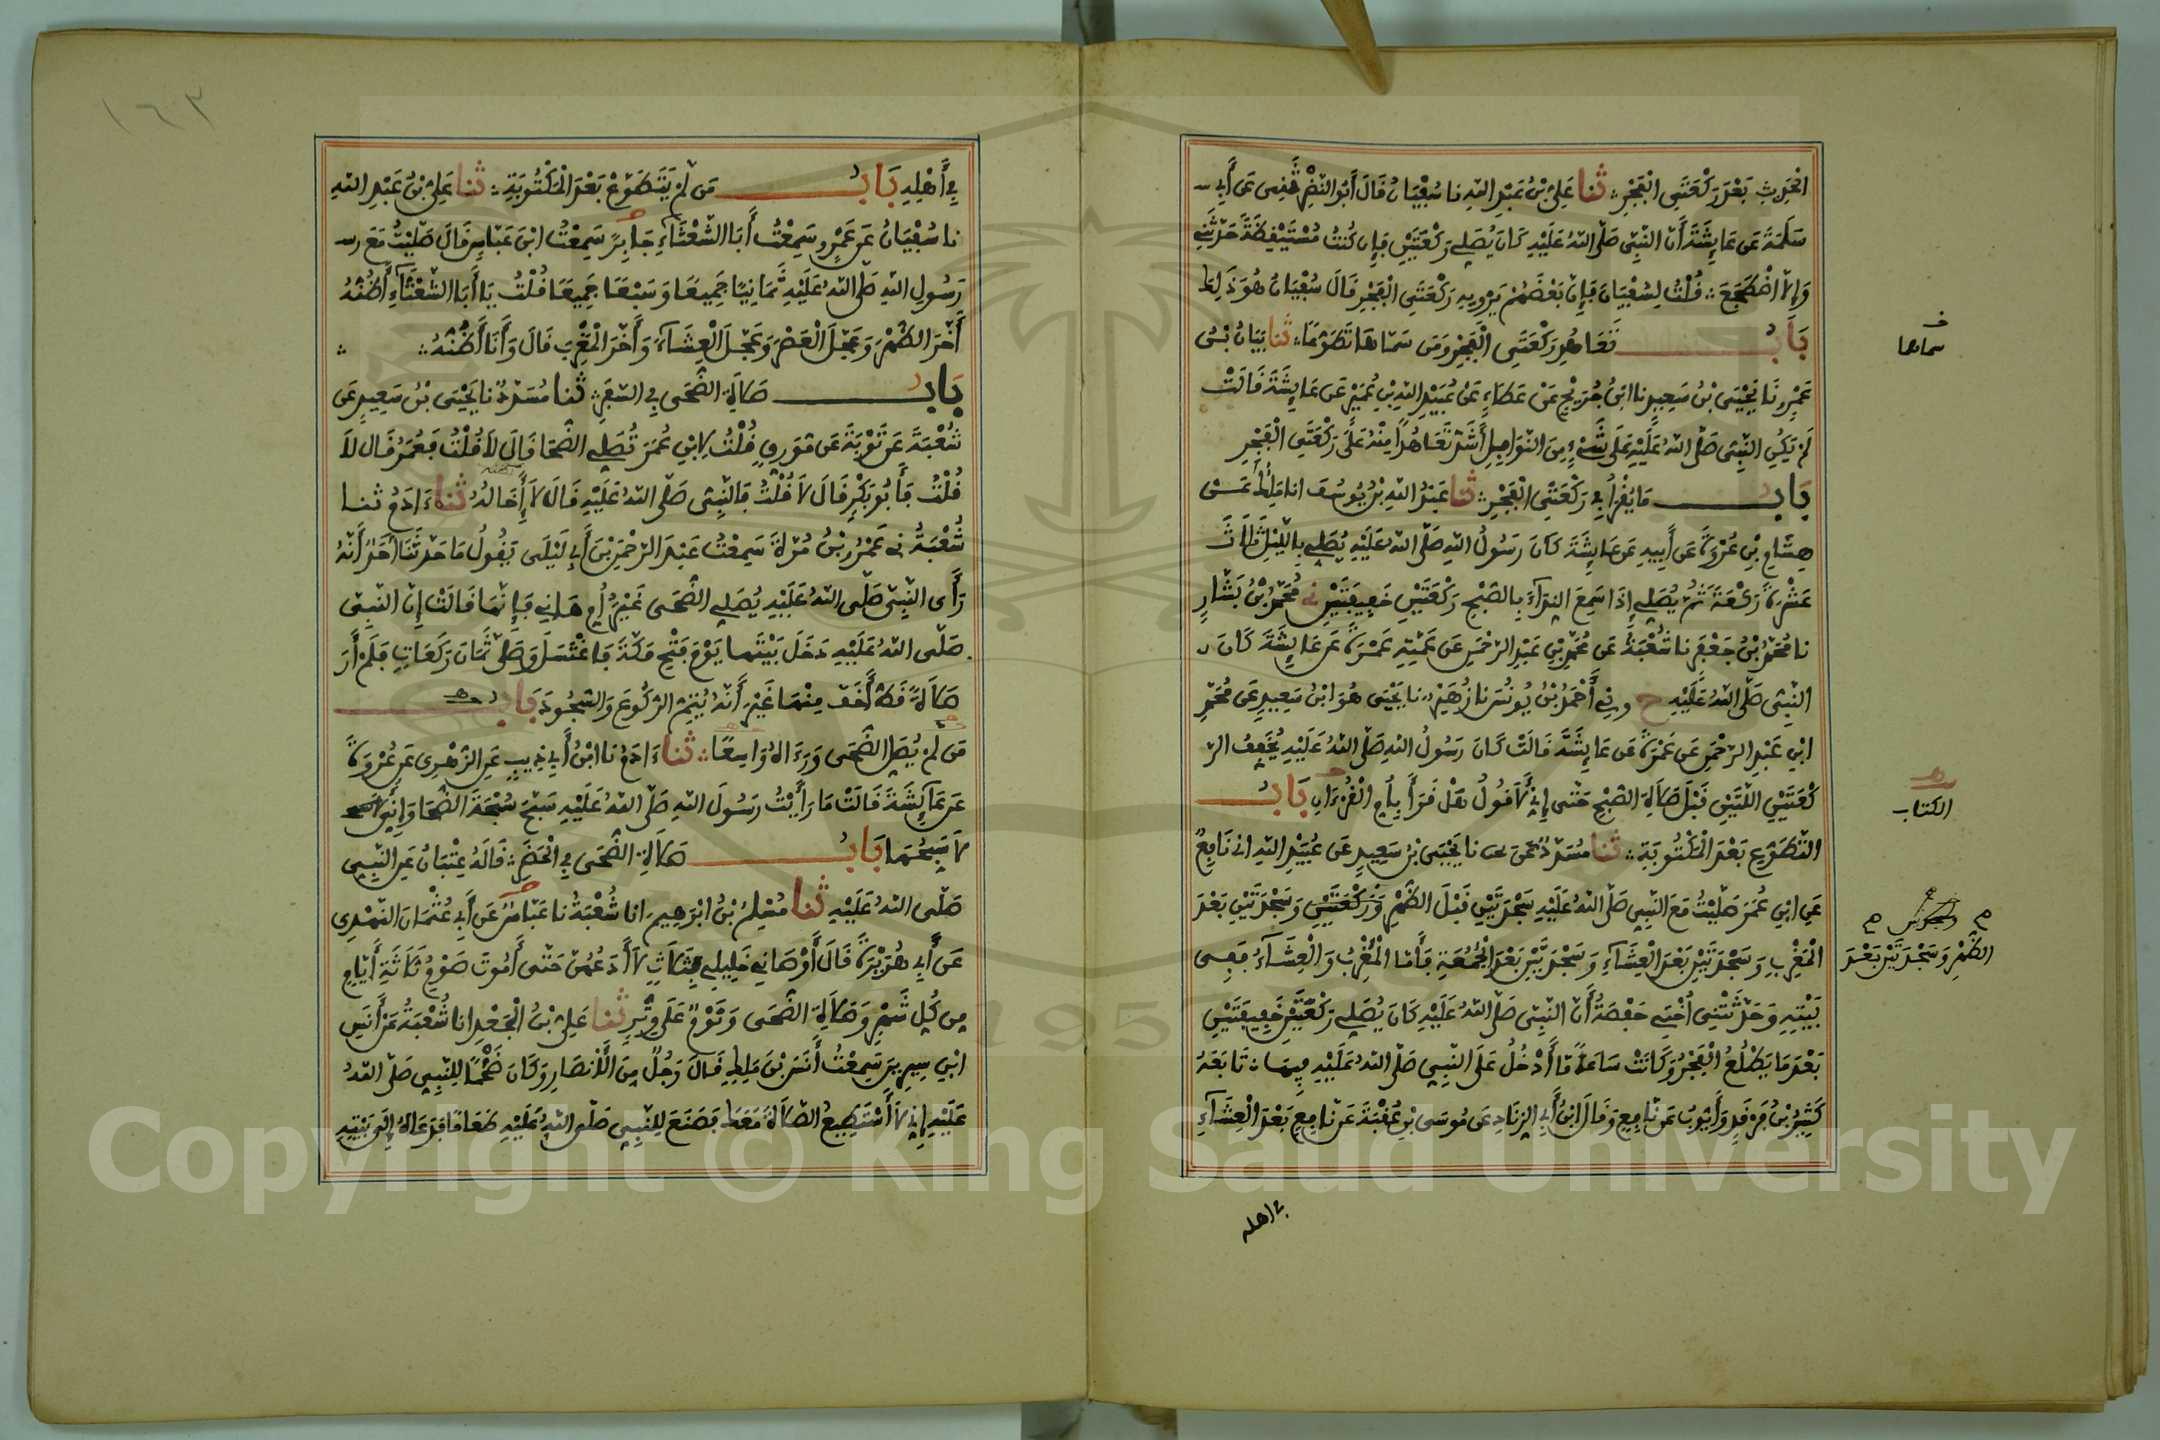 الحديث بعد ركعتي الفجر ثنا علي بن عبد الله نا سفيان قال أبو النضر ثني عن أبي
سلمة عن عايشة أن النبي صلى الله عليه كان يصلي ركعتين فإن كنت مستيقظة حدثني
وإلا اضطجع قلت لسفيان فإن بعضهم يرويه ركعتي الفجر قال سفيان هو ذلك
باب تعاهد ركعتي الفجر ومن سماها تطوعا ثنا بيان بن
عمرو نا يحيى بن سعيد نا ابن جريج عن عطاء عن عبيد الله بن عمير عن عايشة قالت
لم يكن النبي صلى الله عليه على شيء من النوافل أشد تعاهدا منه على ركعتي الفجر
باب ما يقرأ في ركعتي الفجر ثنا عبد الله بن يوسف انا ملك عن
هشام بن عروة عن أبيه عن عايشة كان رسول الله صلى الله عليه يصلي بالليل ثلاث
عشرة ركعة ثم يصلي إذا سمع النداء بالصبح ركعتين خفيفتين ني محمد بن بشار
نا محمد بن جعفر نا شعبة عن محمد بن عبد الرحمن عن عمته عمرة عن عايشة كان
النبي صلى الله عليه ح وني أحمد بن يونس نا زهير نا يحيى هو ابن سعيد عن محمد
ابن عبد الرحمن عن عمرة عن عايشة قالت كان رسول الله صلى الله عليه يخفف الر
كعتين اللتين قبل صلاة الصبح حتى إني لأقول هل قرأ بأم القرءان باب
التطوع بعد المكتوبة ثنا مسدد نا يحيى بن سعيد عن عبيد الله اني نافع
عن ابن عمر صليت مع النبي صلى الله عليه سجدتين قبل الظهر وركعتين وسجدتين بعد
المغرب وسجدتين بعد العشاء وسجدتين بعد الجمعة فأما المغرب والعشاء ففي
بيته وحدثتني أختي حفصة أن النبي صلى الله عليه كان يصلي ركعتين خفيفتين
بعد ما يطلع الفجر وكانت ساعة لا أدخل على النبي صلى الله عليه فيها تابعه
كثير بن فرقد وأيوب عن نافع وقال ابن أبي الزناد عن موسى بن عقبة عن نافع بعد العشاء
في اهله
سماهما
الكتاب
الظهر وسجدتين بعد
١٦٣
في أهله باب من لم يتطوع بعد المكتوبة ثنا علي بن عبد الله
نا سفيان عن عمرو سمعت أبا الشعثاء جابر سمعت ابن عباس قال صليت مع رسـ
رسول الله صلى الله عليه ثمانيا جميعا وسبعا جميعا قلت يا أبا الشعثاء أظنه
أخر الظهر وعجل العصر وعجل العشاء وأخر المغرب قال وأنا أظنه
باب صلاة الضحى في السفر ثنا مسدد نا يحيى بن سعيد عن
شعبة عن توبة عن مورق قلت لابن عمر تصلي الضحا قال لا قلت فعمر قال لا
قلت فأبو بكر قال لا قلت فالنبي صلى الله عليه قال لا إخاله ثنا ءادم ثنا
شعبة ني عمرو بن مرة سمعت عبد الرحمن بن أبي ليلى يقول ما حدثنا أحد أنه
رأى النبي صلى الله عليه يصلي الضحى غير أم هاني فإنها قالت إن النبي
صلى الله عليه دخل بيتها يوم فتح مكة فاغتسل وصلى ثمان ركعات فلم أر
صلاة قط أخف منها غير أنه يتم الركوع والسجود باب
من لم يصل الضحى ورءاه واسعا ثنا ءادم نا ابن أبي ذيب عن الزهري عن عروة
عن عايشة قالت ما رأيت رسول الله صلى الله عليه سبح سبحة الضحا وإني
لأسبحها باب صلاة الضحى في الحضر قاله عتبان عن النبي
صلى الله عليه ثنا مسلم بن ابرهيم انا شعبة نا عباس عن أبي عثمان النهدي
عن أبي هريرة قال أوصاني خليلي بثلاث لا أدعهن حتى أموت صوم ثلاثة أيام
من كل شهر وصلاة الضحى ونوم على وتر ثنا علي بن الجعد انا شعبة عن أنس
ابن سيرين سمعت أنس بن ملك قال رجل من الأنصار وكان ضخما للنبي صلى الله
عليه إني لا أستطيع الصلاة معك فصنع للنبي صلى الله عليه طعاما فدعاه إلى بيته
Copyright © King Saud University
1957